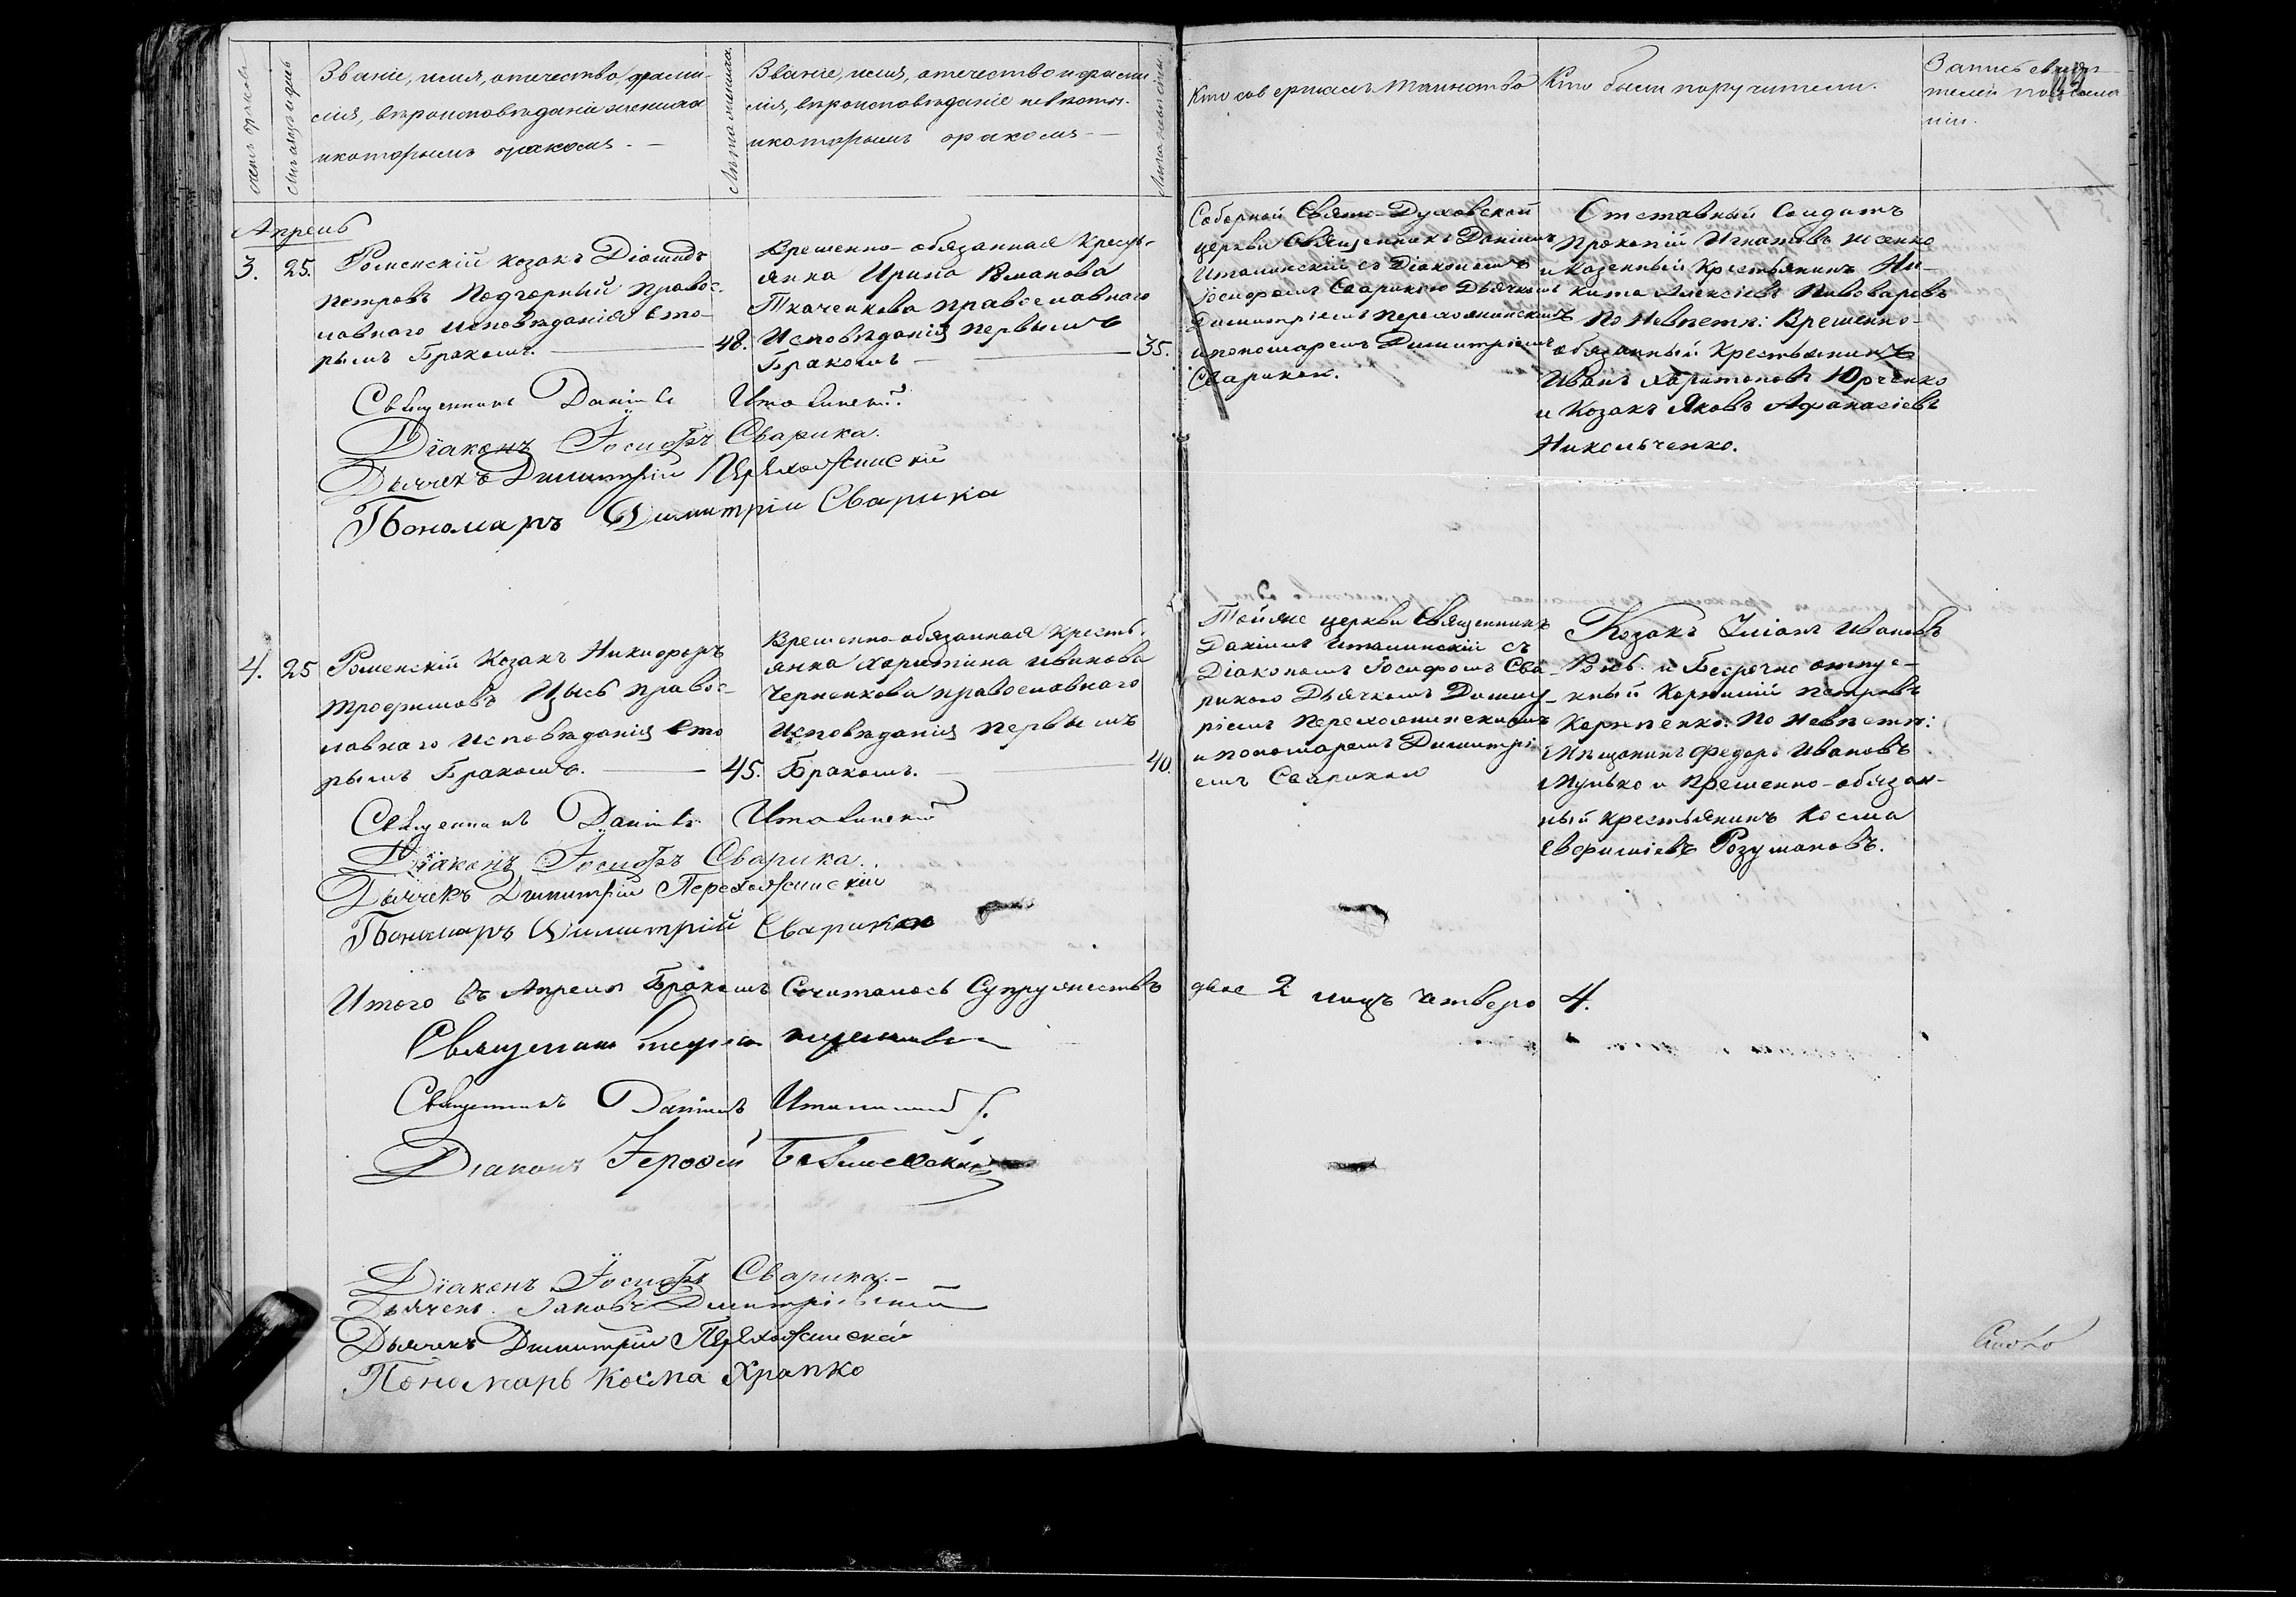 Счетъ браковъ
Мѣсяцъ и день
Званіе, имя, отечество, фами-
лія, вѣроисповѣданіе жениха
и которымъ бракомъ. —
Лѣта жениха.
Званіе, имя, отечество и фами
лія, вѣроисповѣданіе невѣсты.
и которымъ бракомъ —
Лѣта невѣсты.
Кто совершалъ таинство
Кто были поручители.
Запись свидѣ-
телей по
нію.
Апрель
3. 25. Роменскій козакъ Діомидъ
Петровъ Подгорный Правос-
лавнаго Исповѣданія вто-
рымъ Бракомъ. — 48.
Временно-обязанная Кресть-
янка Ирина Романова
Ткаченкова Православнаго
Исповѣданія первымъ
Бракомъ — 35.
Соборной Свято-Духовской
церкви Священникъ Даніилъ
Италинскій съ Діакономъ
Іосифомъ Сварикою Дьячкомъ
Димитріемъ Перехожинскимъ
и пономаремъ Димитріемъ
Сварикой.
Отставный Солдатъ
Прокопій Игнатовъ
и Казенный Крестьянинъ Ни-
кита Алексіевъ Пивоваровъ
По Невѣстѣ: Временно-
обязанный Крестьянинъ
Иванъ Харитоновъ Юрченко
и Козакъ Яковъ Афанасіевъ
Никольченко.
Священникъ Даніилъ Италинскій
Діаконъ Іосифъ Сварика.
Дьячекъ Димитрій Перехожинскій
Пономарь Димитрій Сварика
4. 25 Роменскій Козакъ Никифоръ
Трофимовъ Цысь правос-
лавнаго Исповѣданія вто
рымъ Бракомъ. — 45.
Временно-обязанная Кресть-
янка Харитина Иванова
Черненкова православнаго
Исповѣданія первымъ
Бракомъ. — 40.
Тойже церкви Священникъ
Даніилъ Италинскій съ
Діакономъ Іосифомъ Сва-
рикою Дьячкомъ Димит-
ріемъ Перехожинскимъ
и пономаремъ Димитрі
емъ Сварикой
Козакъ Иванъ
и Безсрочно отпус-
кный Корнилій Петровъ
По Невѣстѣ:
Мѣщанинъ Федоръ Ивановъ
и Временно-обязан-
ный крестьянинъ Косма
Евфиміевъ Розумановъ.
Священникъ Даніилъ Италинскій
Діаконъ Іосифъ Сварика.
Дьячекъ Димитрій Перехожинскій
Пономарь Димитрій Сварика
Итого въ Апрелѣ Бракомъ Сочиталось Супружествъ двое 2 лицъ четверо 4.
Священникъ
Священникъ Даніилъ Италинскій
Діаконъ
Діаконъ Іосифъ Сварика. —
Дьячекъ Іаковъ Димитріевскій
Дьячекъ Димитрій Перехожинскій
Пономарь Косма Храпко